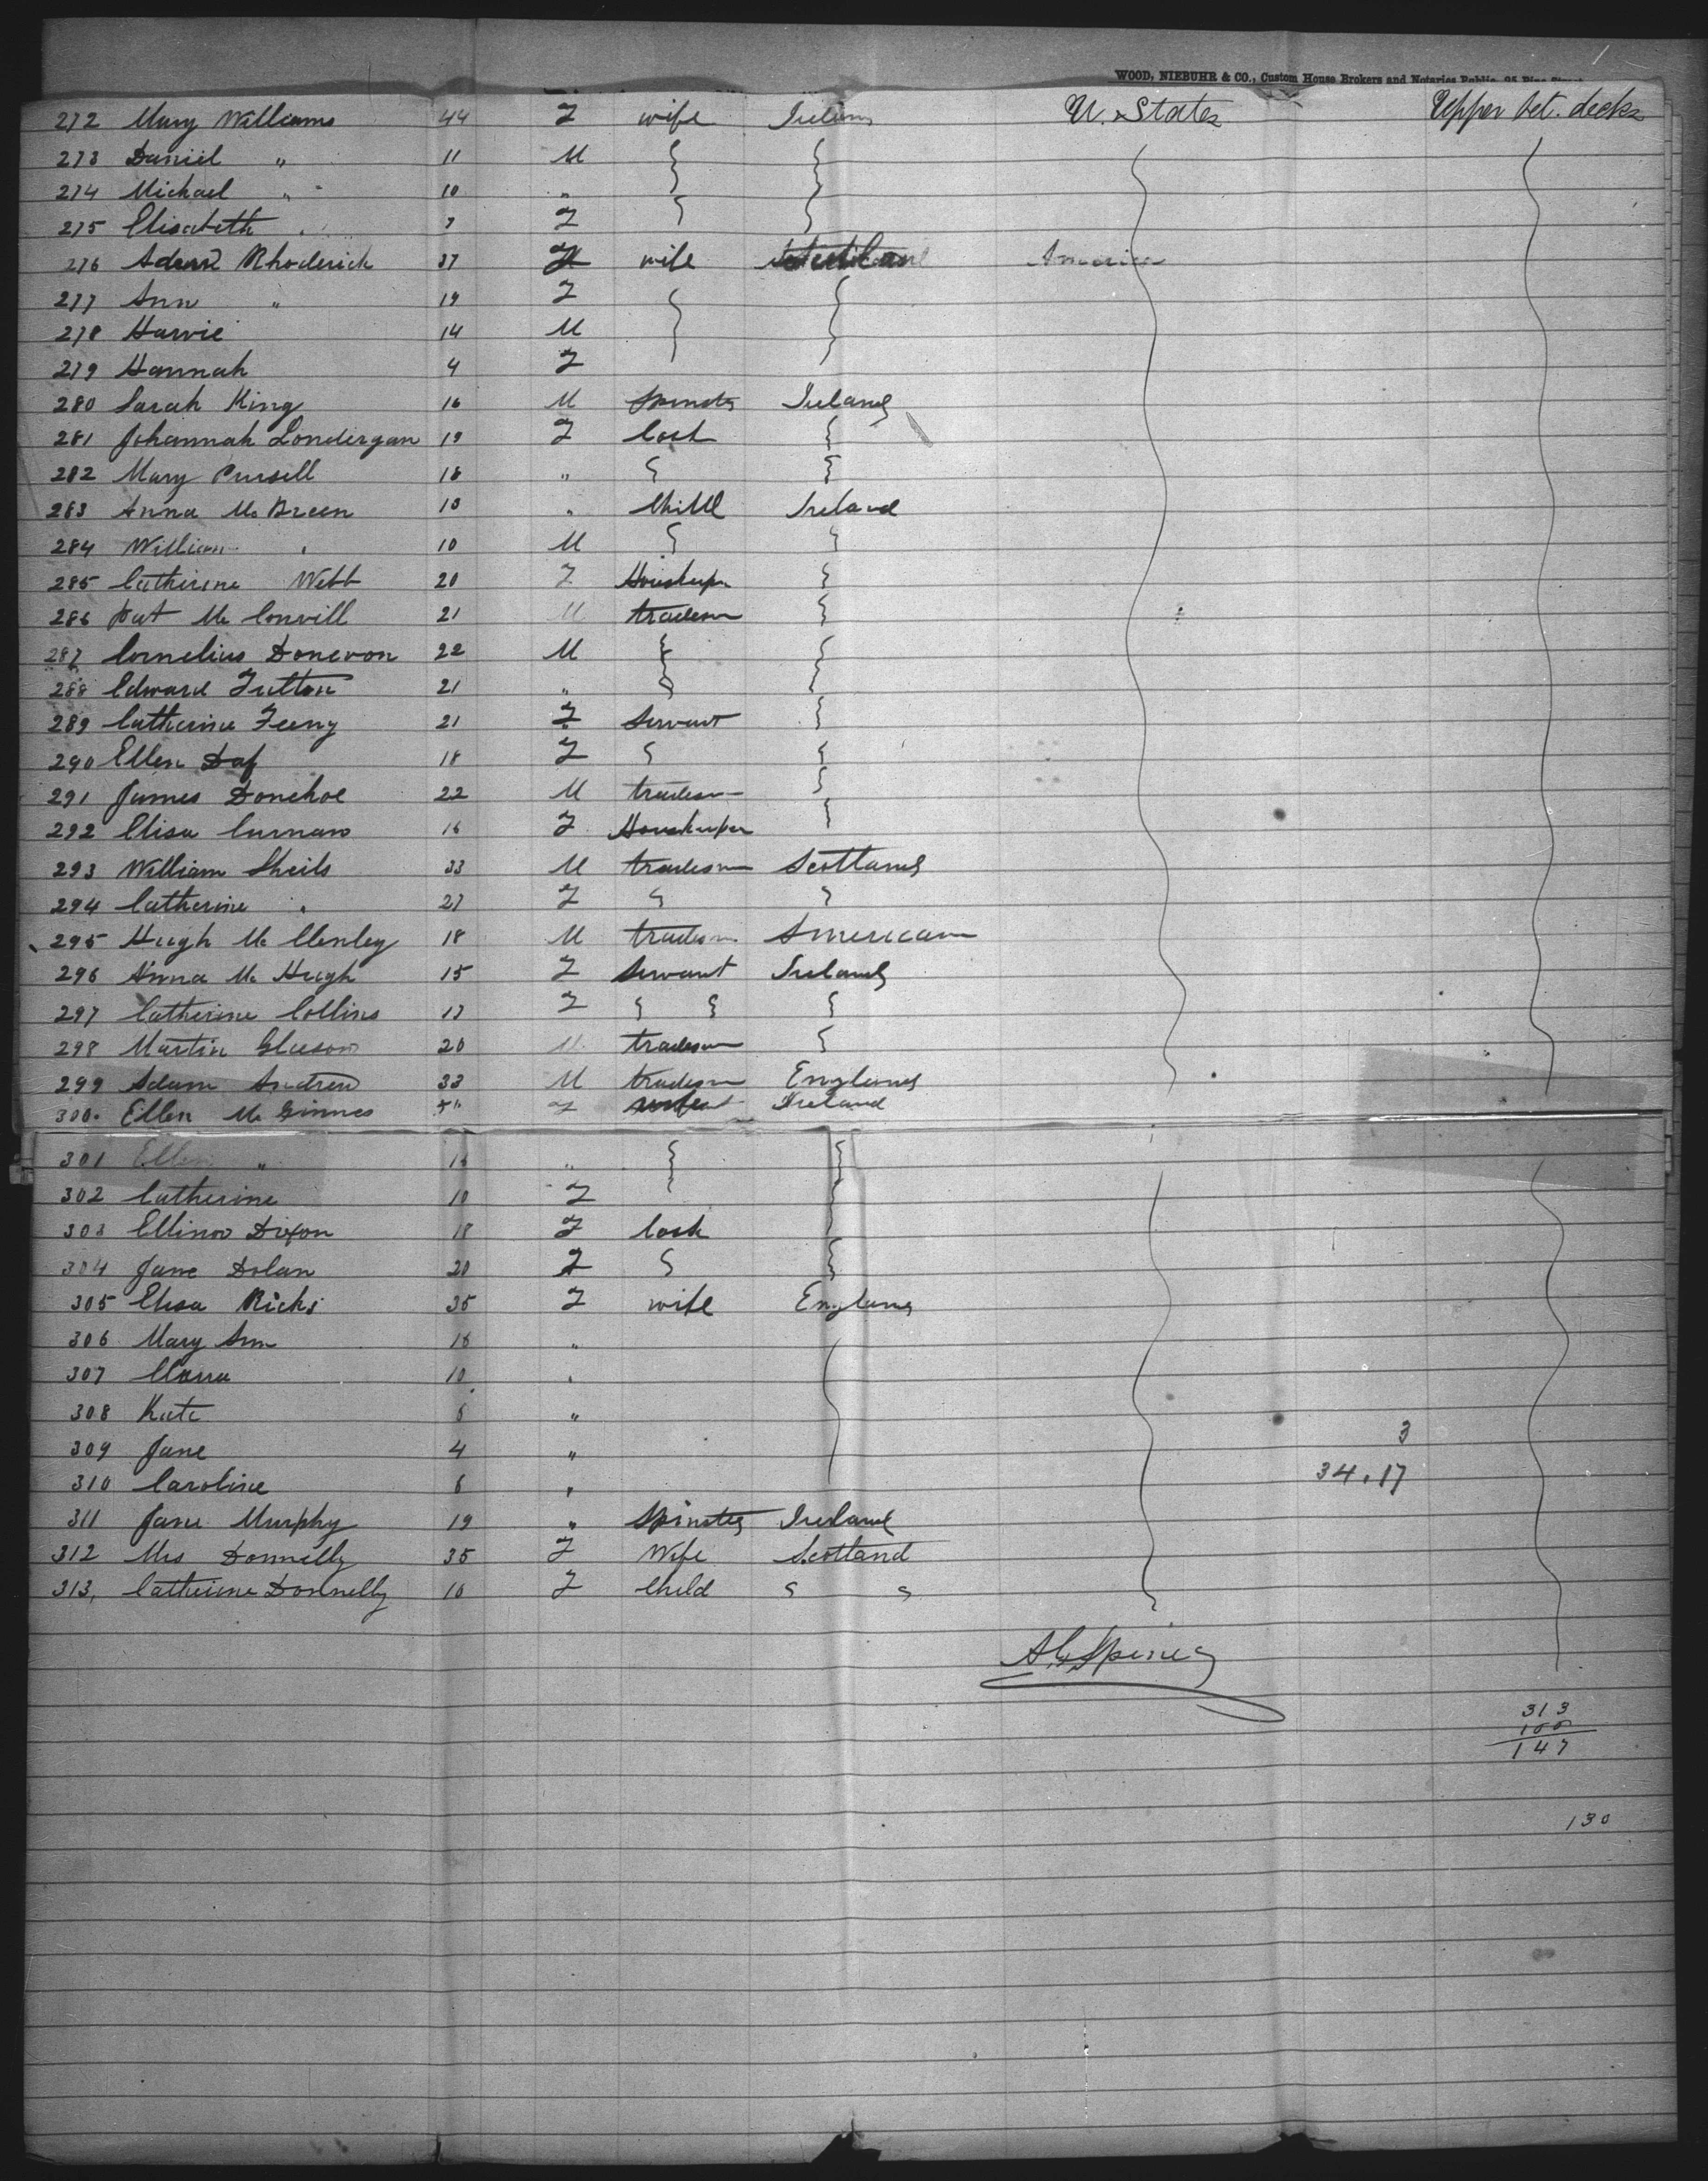 WOOD, NIEBUHR & CO., Custom House Brokers and Notaries Public
272 Mary Williams 44 F wife Ireland U. States Upper bet. decks
273 Daniel " 11 M
274 Michael " 10 "
275 Elisabeth 7 F
276 Rhoderick 37 F wife America
277 Ann " 19 F
278 Harvie 14 M
279 Hannah 4 F
280 Sarah King 16 M Spinster Ireland
281 Johannah Londergan 19 F Cook
282 Mary Pursell 18 "
283 Anna Mc Breen 10 " Child Ireland
284 William " 10 M
285 Catherine Webb 20 F Housekeeper
286 Pat Mc Convill 21 M tradesm
287 Cornelius Donevon 22 M
288 Edward Fulton 21 "
289 Catherine Feeny 21 F Servant
290 Ellen Daf 18 F
291 James Donehoe 22 M tradesm
292 Elisa Curnaw 16 F Housekeeper
293 William Sheils 33 M tradesm Scotland
294 Catherine " 27 F
295 Hugh Mc Clenley 18 M tradesm American
296 Anna Mc Hugh 15 F Servant Ireland
297 Catherine Collins 17 F
298 Martin Gleeson 20 M tradesm
299 Adam Andrew 33 M tradesm England
300. Ellen Mc Ginnes F Ireland
301 Ellen " 16 "
302 Catherine 10 F
303 Ellinor Dixon 18 F Cook
304 Jane Dolan 20 F
305 Elisa Ricks 35 F wife England
306 Mary Ann 18 "
307 Clara 10 "
308 Kate 6 "
309 Jane 4 " 3
310 Caroline 6 " 34.17
311 Jane Murphy 19 " Spinster Ireland
312 Mrs Donnelly 35 F Wife Scotland
313, Catherine Donnelly 10 F Child
313
147
130